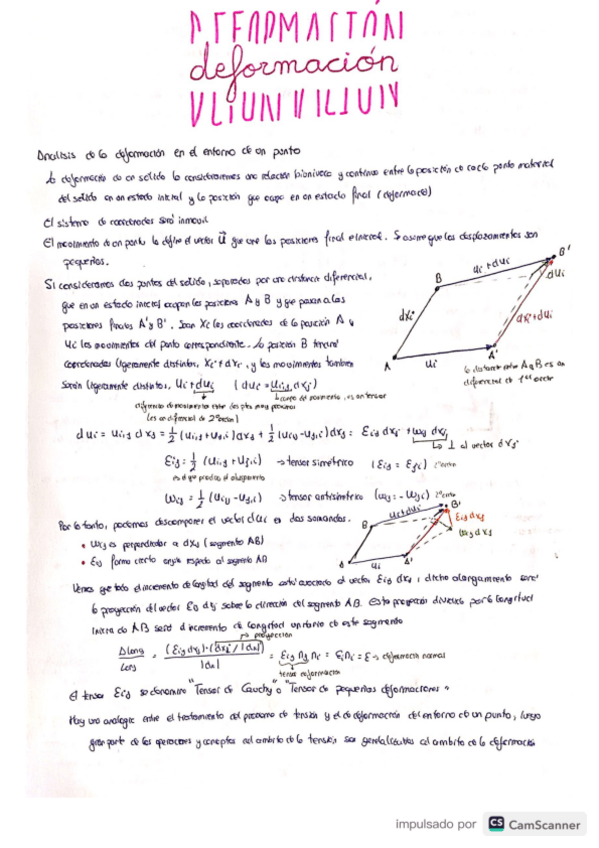 DEFORMACIÓN
deformación
DEFORMACIÓN
Análisis de la deformación en el entorno de un punto
La deformación de un sólido la consideraremos una relación bionívoca y continua entre la posición de cada punto material
del sólido en un estado inicial y la posición que ocupa en un estado final (deformado)
El sistema de coordenadas será inmóvil
El movimiento de un punto lo define el vector u⃗ que une las posiciones final e inicial. Se asume que los desplazamientos son
pequeños.
Si consideramos dos puntos del sólido, separados por una distancia diferencial,
que en un estado inicial ocupan las posiciones A y B y que pasan a las
posiciones finales A' y B'. Sean Xi las coordenadas de la posición A y
Ui los movimientos del punto correspondiente. La posición B tendrá
coordenadas ligeramente distintas, Xi + dXi, y los movimientos también
serán ligeramente distintos, Ui + dui ( dui = ui,j dxj )
campo de movimiento, es un tensor
diferencia de movimientos entre dos ptos muy próximos
(es un diferencial de 2º orden)
B
B'
ui + dui
dui
dxi
dxi + dui
A
ui
A'
la distancia entre A y B es un
diferencial de 1er orden
dui = ui,j dxj = 1/2 (ui,j + uj,i) dxj + 1/2 (ui,j - uj,i) dxj = Eij dxj + ωij dxj
⊥ al vector dxj
Eij = 1/2 (ui,j + uj,i) → tensor simétrico (Eij = Eji) 2º orden
es el que produce el alargamiento
ωij = 1/2 (ui,j - uj,i) → tensor antisimétrico (ωij = - ωji) 2º orden
Por lo tanto, podemos descomponer el vector dui en dos sumandos.
• ωij es perpendicular a dxj (segmento AB)
• Eij forma cierto ángulo respecto al segmento AB
B
ui + dui
B'
Eij dxj
ωij dxj
A
ui
A'
Vemos que todo el incremento de longitud del segmento está asociado al vector Eij dxj, dicho alargamiento será
la proyección del vector Eij dxj sobre la dirección del segmento AB. Esta proyección dividida por la longitud
inicial de AB será el incremento de longitud unitario de este segmento
proyección
Δlong / Long = (Eij dxj) · (dxi / |dx|) / |dx| = Eij nj ni = Ei ni = E → deformación normal
tensor deformación
El tensor Eij se denomina "Tensor de Cauchy" o "Tensor de pequeñas deformaciones"
Hay una analogía entre el tratamiento del problema de tensión y el de deformación del entorno de un punto, luego
gran parte de las operaciones y conceptos del ámbito de la tensión son generalizables al ámbito de la deformación
impulsado por CS CamScanner